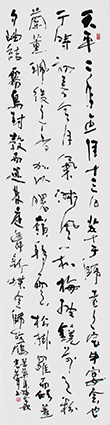 天平二年正月十三日萃于帥老之宅申宴會也
于時初春令月氣淑風和梅披鏡前之粉
蘭薫珮後之香加以曙嶺移雲松掛羅而傾蓋
夕岫結霧鳥封縠而迷林庭舞新蝶空歸故鴈